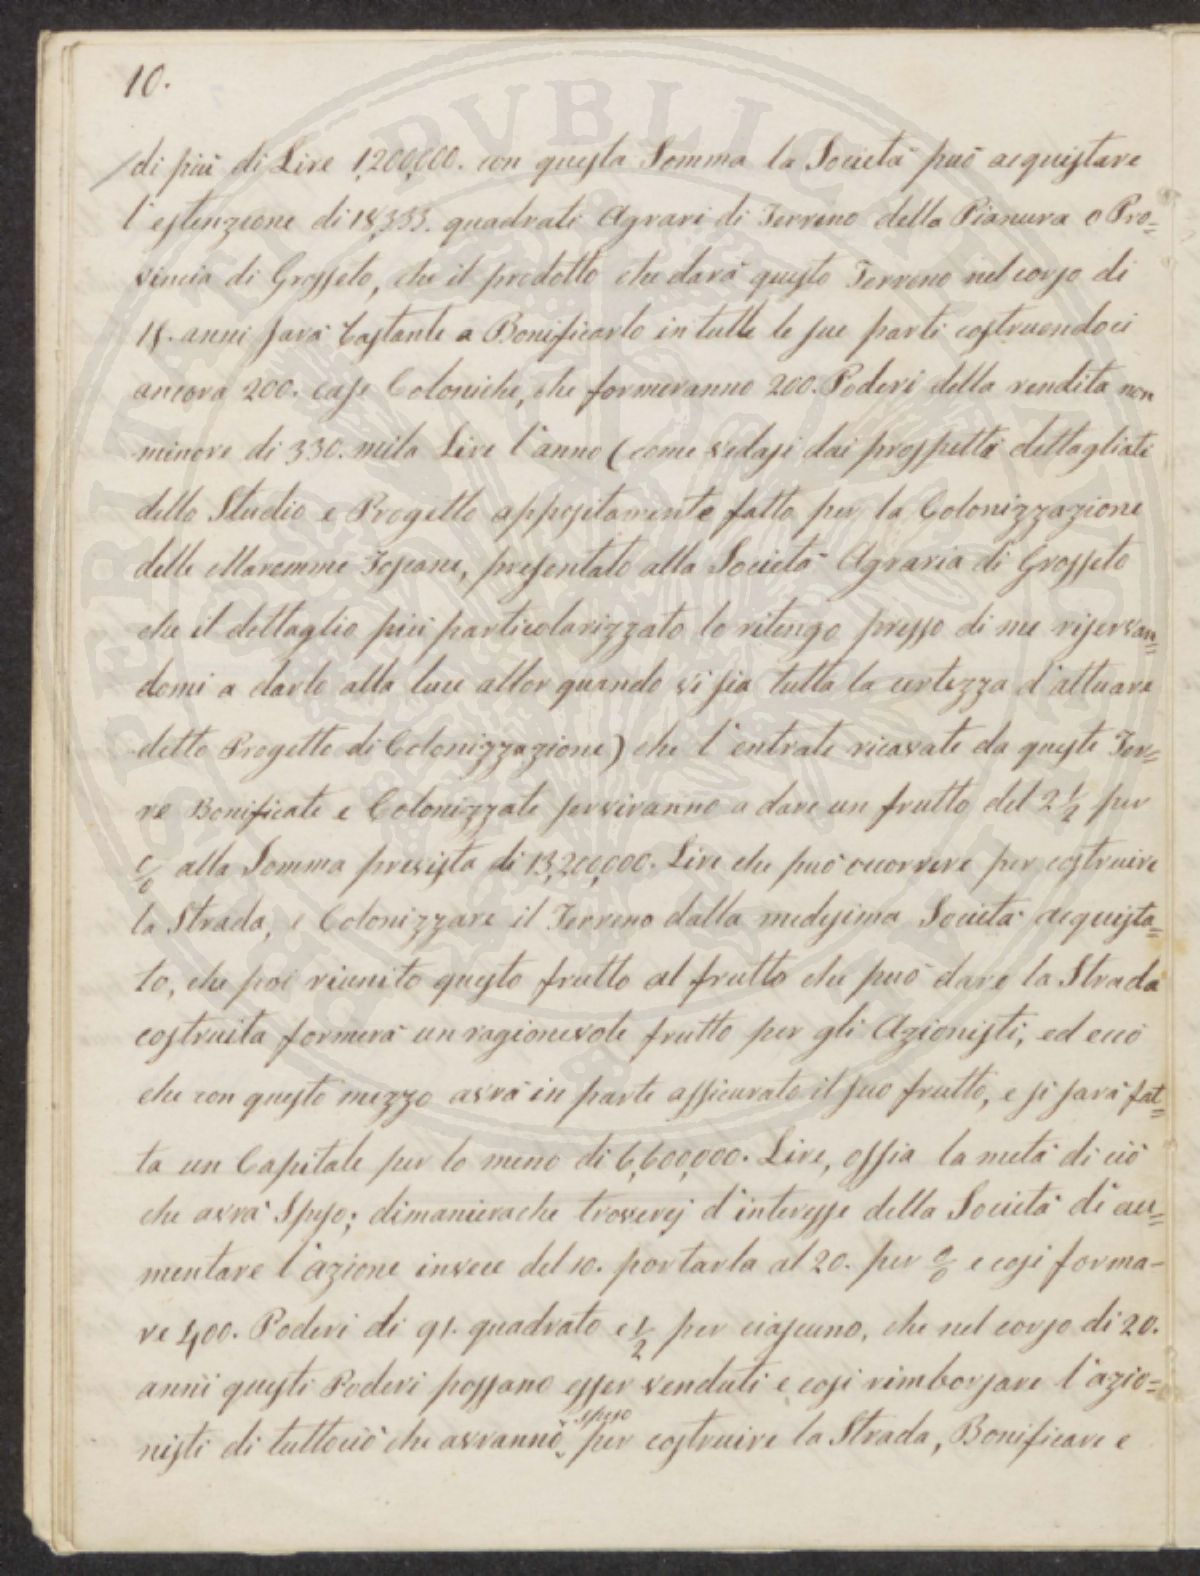 10.
di più di Lire 1,200,000. con questa Somma la Società può acquistare
l'estenzione di 18,333. quadrati Agrari di Terreno della Pianura o Pro=
vincia di Grosseto, che il prodotto che darà questo Terreno nel corso di
18. anni sarà bastante a Bonificarlo in tutte le sue parti costruendoci
ancora 200. case Coloniche, che formeranno 200. Poderi della rendita non
minore di 330. mila Lire l'anno (come vedasi dai prospetti dettagliati
dello Studio e Progetto appositamente fatto per la Colonizzazione
delle Maremme Toscane, presentato alla Società Agraria di Grosseto
che il dettaglio più particolarizzato lo ritengo presso di me riservan=
domi a darlo alla luce allor quando vi sia tutta la certezza d'attuare
detto Progetto di Colonizzazione) che l'entrate ricavate da queste Ter=
re Bonificate e Colonizzate serviranno a dare un frutto del 2 1/2 per
c/o alla Somma prevista di 13,200,000. Lire che può occorrere per costruire
la Strada, e Colonizzare il Terreno dalla medesima Società acquista=
to, che poi riunito questo frutto al frutto che può dare la Strada
costruita formerà un ragionevole frutto per gli Azionisti, ed ecco
che con questo mezzo avrà in parte assicurato il suo frutto, e si sarà fat=
ta un Capitale per lo meno di 6,600,000. Lire, ossia la metà di ciò
che avrà Speso; dimanierache troverej d'interesse della Società di au=
mentare l'azione invece del 10. portarla al 20. per c/o e così forma-
re 400. Poderi di 91. quadrato e 1/2 per ciascuno, che nel corso di 20.
anni questi Poderi possano esser venduti e così rimborsare l'azio=
speso
nisti di tuttociò che avranno per costruire la Strada, Bonificare e